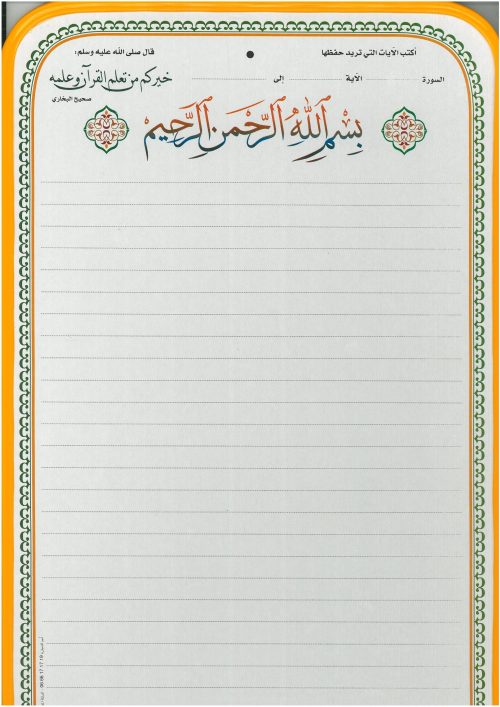 أكتب الآيات التي تريد حفظها
السورة الآية إلى
قال صلى الله عليه وسلم:
خيركم من تعلم القرآن وعلمه
صحيح البخاري
بِسْمِ اللَّهِ الرَّحْمَنِ الرَّحِيمِ